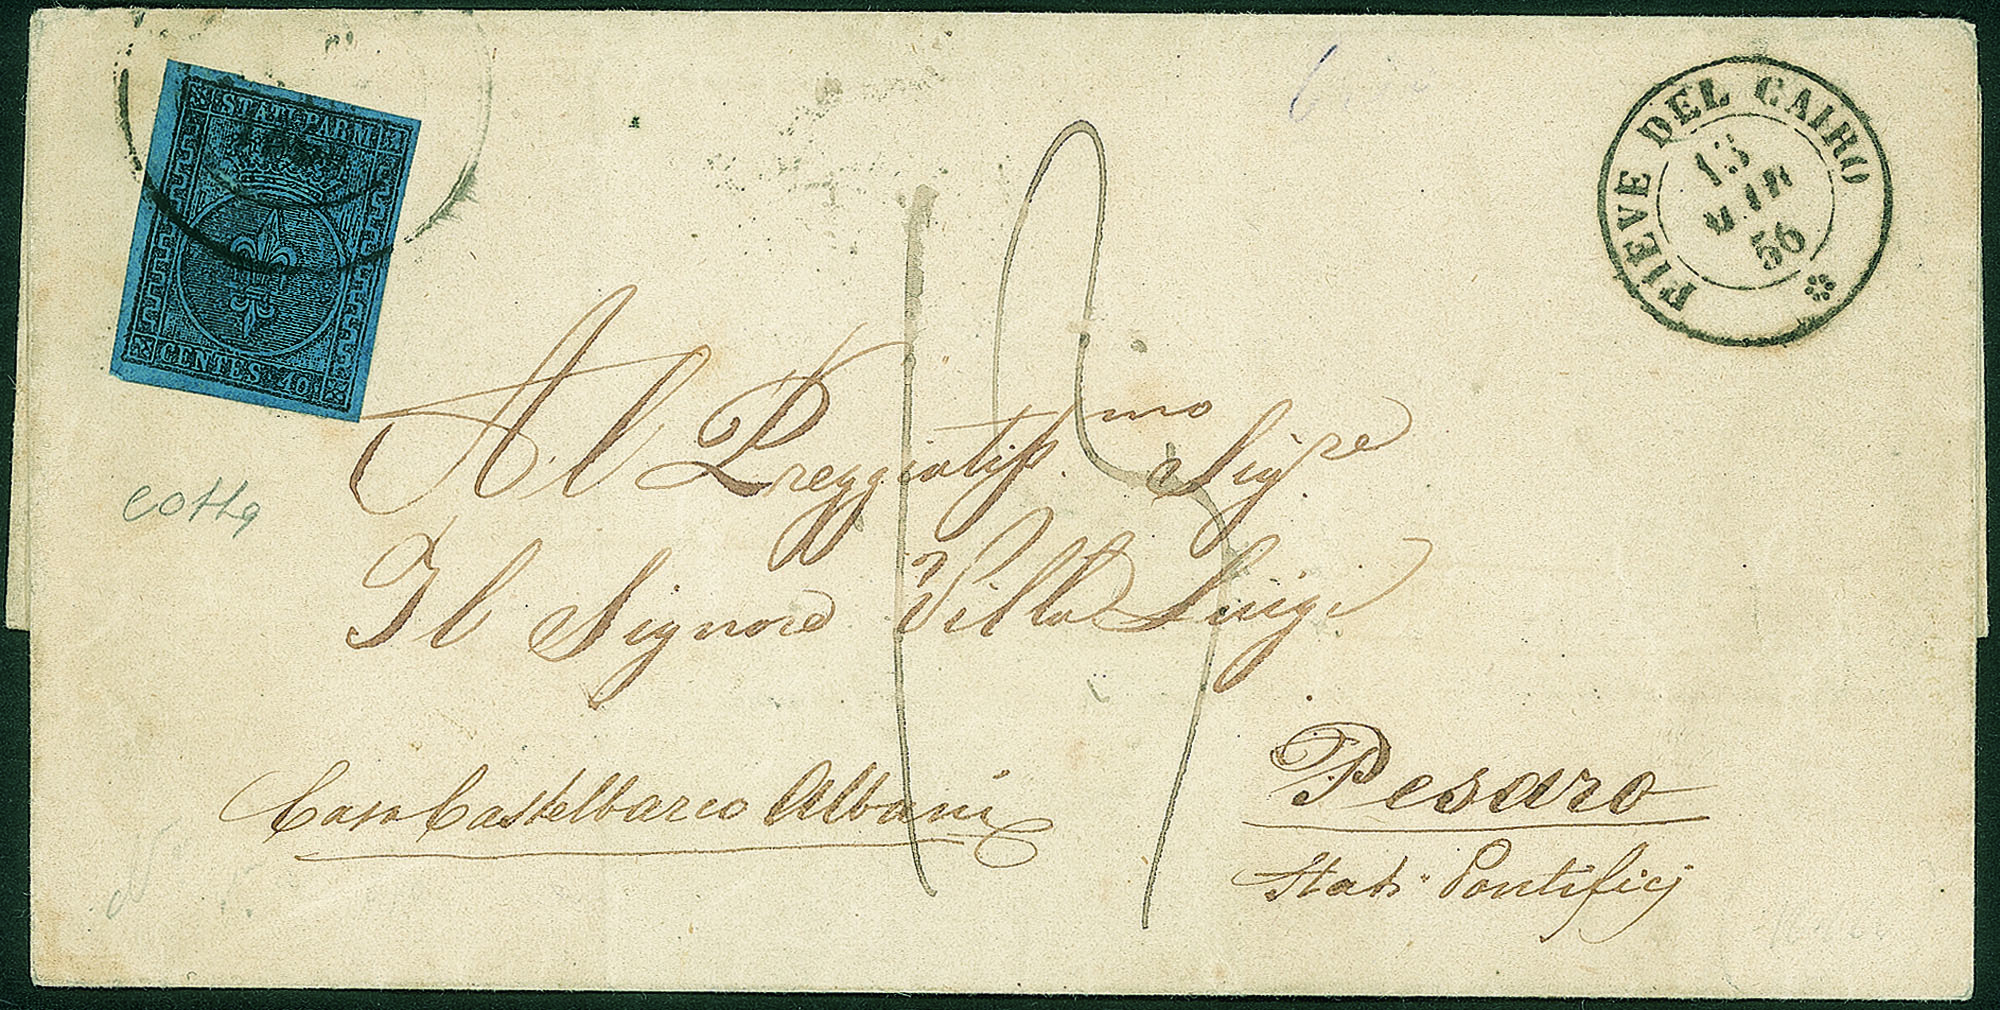 STATI PARM
CENTES. 40
PIEVE DEL CAIRO
13
56
cotta
15
Al Preggiatiss.mo Sigre
Il Signore Villa Luigi
Casa Castelbarco Albani
Pesaro
Stati Pontificj